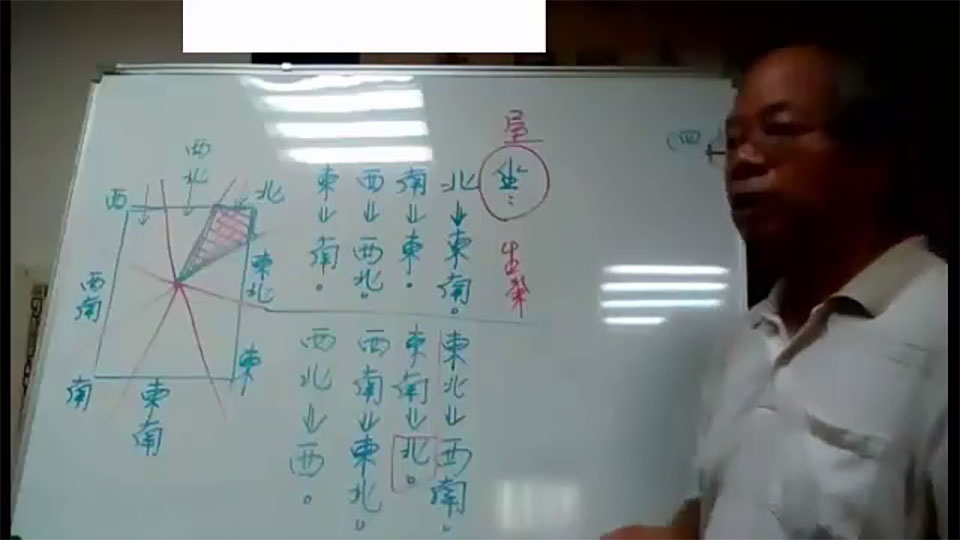 屋
坐
出癸
北↓東南。
南⇓東。
西⇓西北。
東⇓南。
東北⇓西南。
東南⇓北。
西南⇓東北。
西北⇓西。
西
西北
北
西南
東北
南
東南
東
(四)